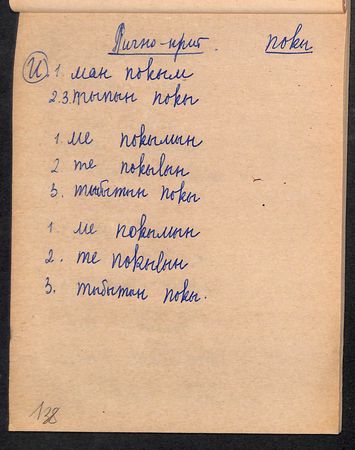 Лично-прит. покы
И. 1. ман покым
2.3. тыпын покы
1. ме покымын
2. те покывын
3. тыбытын покы
1. ме покымын
2. те покывын
3. тыбытан покы.
138